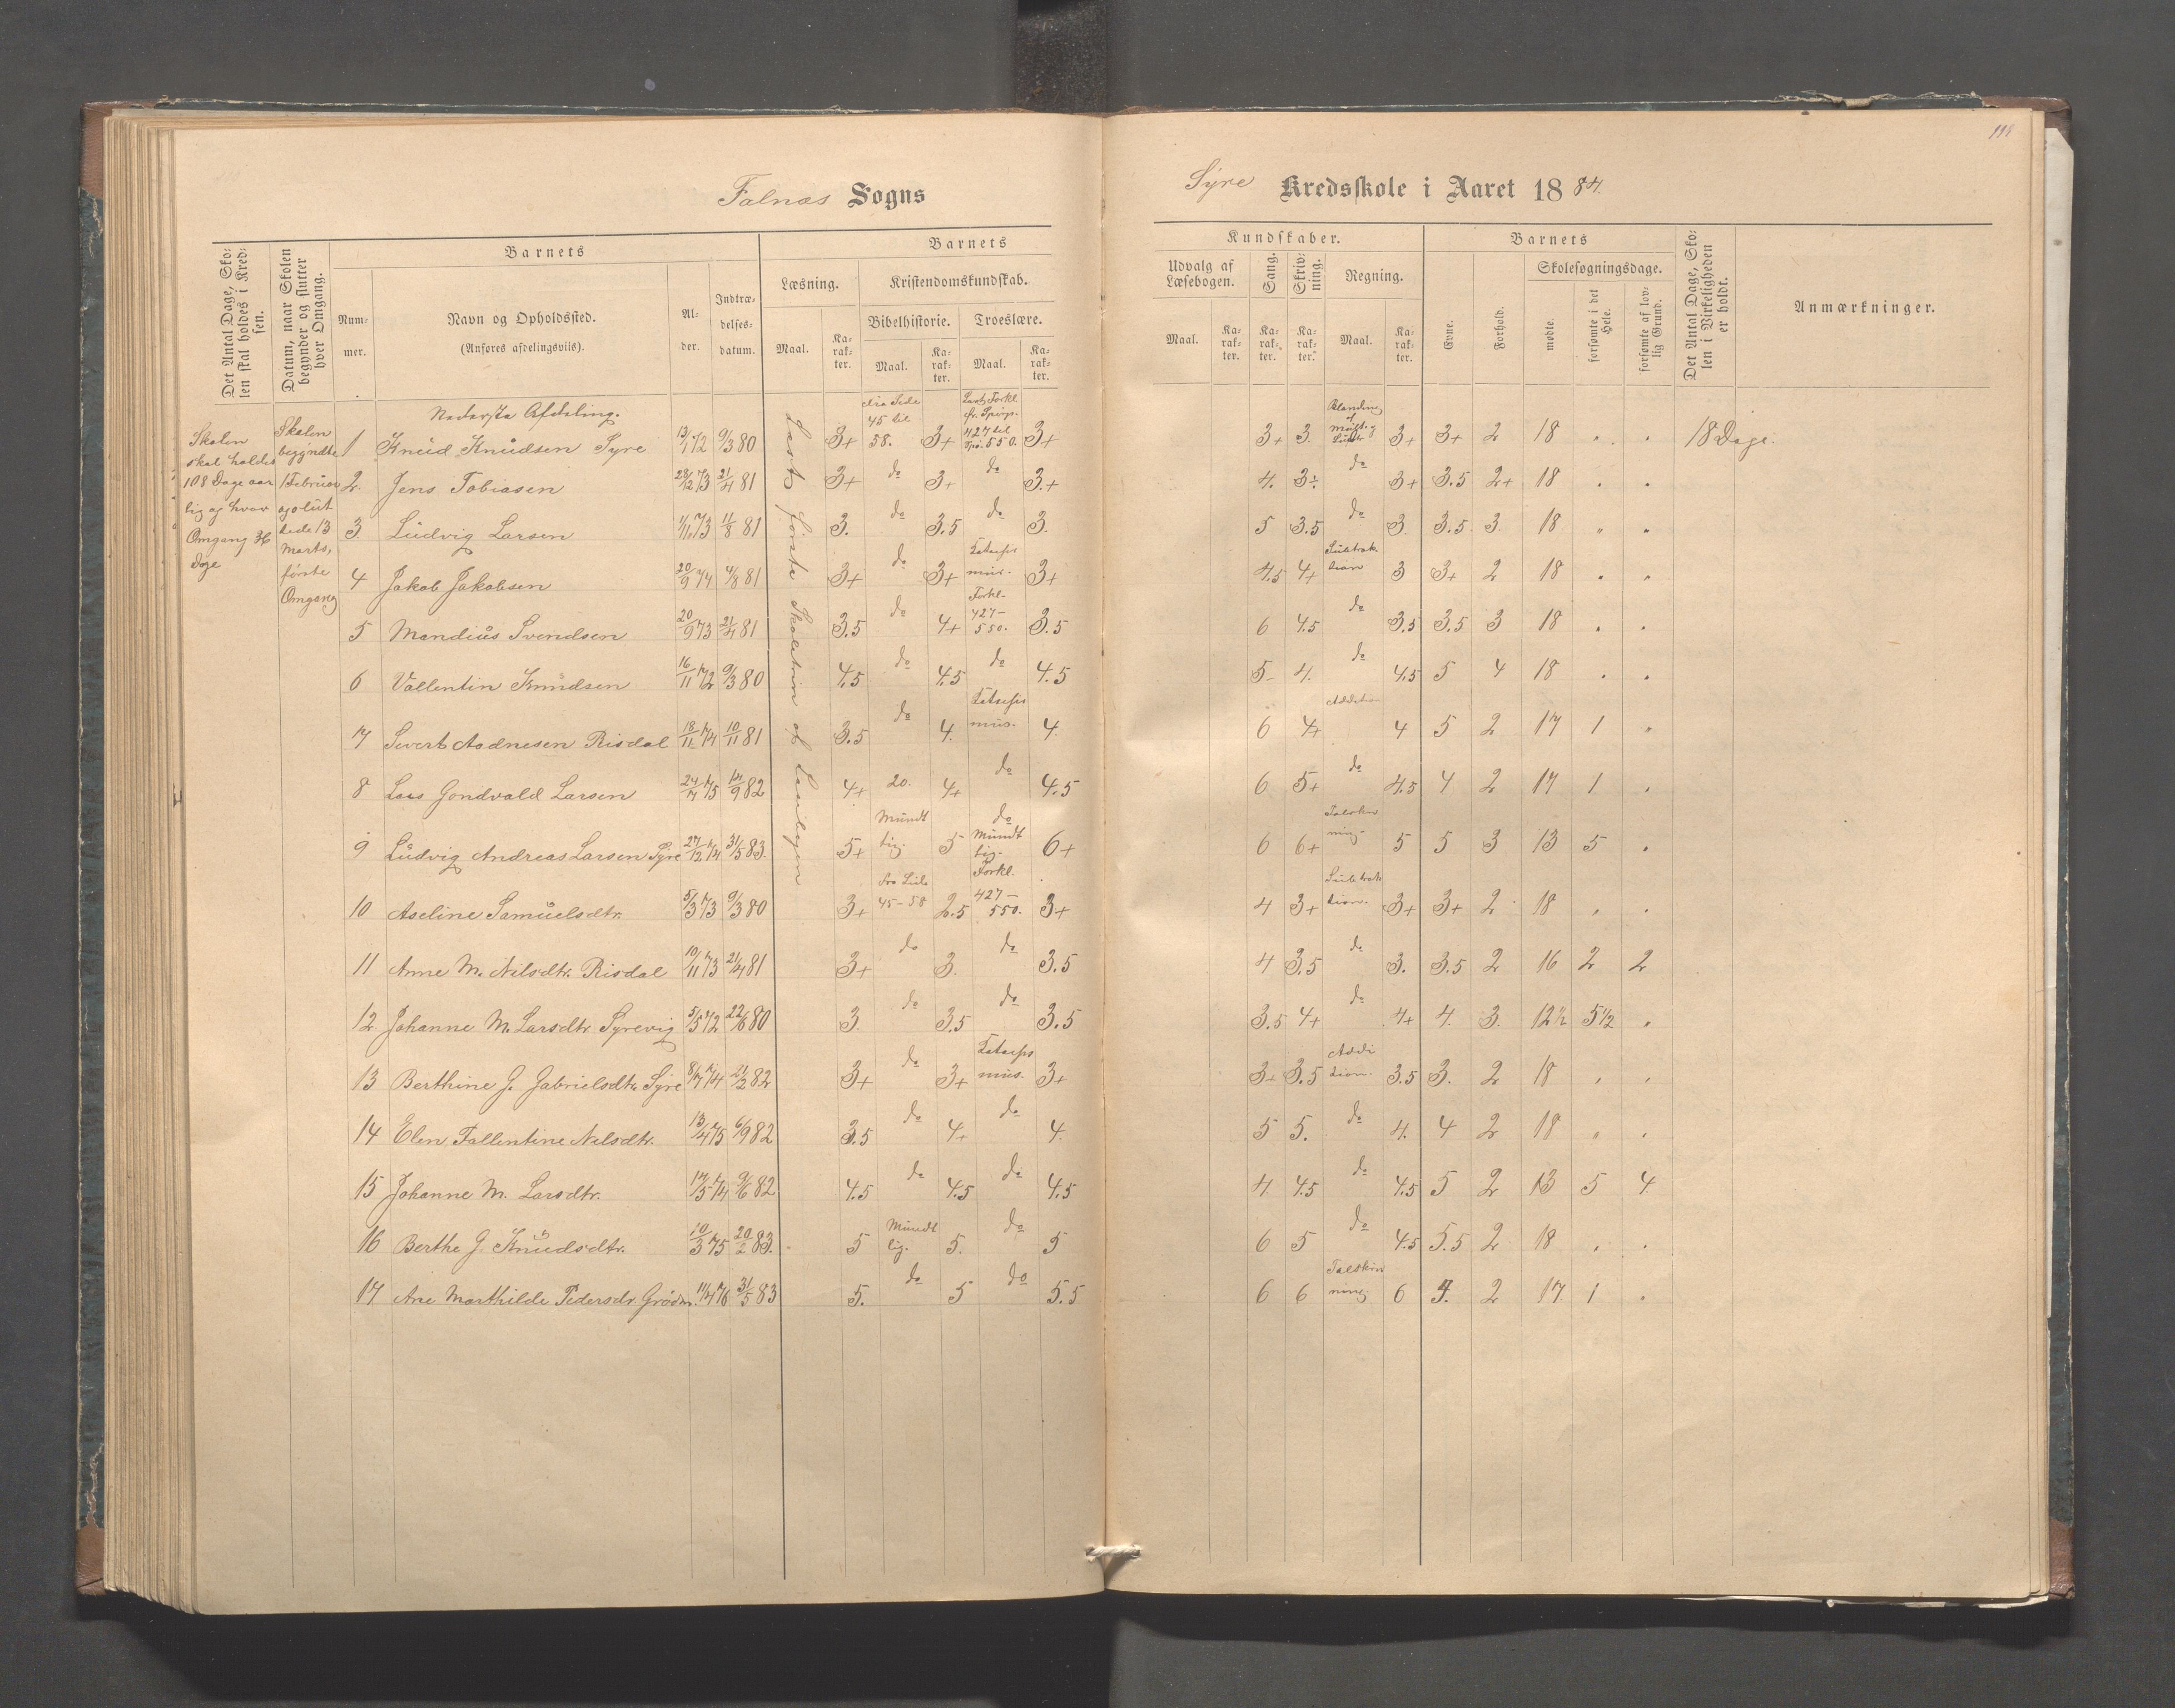 118
Falnæs Sogns
Syre Kredsskole i Aaret 1884.
Det Antal Dage, Sko-
len skal holdes i Kred-
sen.
Datum, naar Skolen
begynder og slutter
hver Omgang.
Barnets
Num-
mer.
Navn og Opholdssted.
(Anføres afdelingsvils).
Al-
der.
Indtræ-
delses-
datum.
Barnets
Læsning.
Kristendomskundskab.
Bibelhistorie. Troeslære.
Maal.
Ka-
rak-
ter.
Maal.
Ka-
rak-
ter.
Maal.
Ka-
rak-
ter.
Kundskaber.
Udvalg af
Læsebogen.
Sang.
Skriv-
ning.
Regning.
Maal.
Ka-
rak-
ter.
Ka-
rak-
ter.
Ka-
rak-
ter.
Maal.
Ka-
rak-
ter.
Barnets
Evne.
Forhold.
Skolesøgningsdage.
mødte.
forsømte i det
Hele.
forsømte af lov-
lig Grund.
Det Antal Dage, Sko-
len i Virkeligheden
er holdt.
Anmærkninger.
Skolen
skal holdes
108 Dage aar
lig og hver
Omgang 36
Dage
Skolen
begyndte
1 Februar
og slut
tede 13
Marts,
første
Omgang
Nederste Afdeling.
Læst første Skoletrin af Læsebogen
1 Knud Knudsen Syre 13/1 72 9/3 80 3+ Fra Side 45 til 58. 3+ 427 til 550. 3+ 3+ 3. Blanding af 3+ 3+ 2 18 " " 18 Dage.
2. Jens Tobiasen 28/12 73 21/4 81 3+ do 3+ do 3.+ 4. 3÷ do 3+ 3.5 2+ 18 " "
3. Ludvig Larsen 1/11 73 11/8 81 3. do 3.5 do 3. 5 3.5 do 3 3.5 3. 18 " "
4 Jakob Jakobsen 20/9 74 4/8 81 3+ do 3+ Katechismus. 3+ 4.5 4+ Subtraktion 3 3+ 2 18 " "
5 Mandius Svendsen 20/9 73 21/4 81 3.5 do 4+ Forkl. 427-550. 3.5 6 4.5 do 3.5 3.5 3 18 " "
6 Vallentin Knudsen 16/11 72 9/3 80 4.5 do 4.5 do 4.5 5 4. do 4.5 5 4 18 " "
7 Sivert Aadnesen Risdal 18/11 74 10/11 81 3.5 do 4. Katechismus. 4. 6 4+ Addition 4 5 2 17 1 "
8 Lars Gondvald Larsen 24/7 75 14/9 82 4+ 20. 4+ do 4.5 6 5+ do 4.5 4 2 17 1 "
9 Ludvig Andreas Larsen Syre 27/12 74 31/5 83. 5+ Mundtlig. 5 do Mundtlig. 6+ 6 6+ Talskrivning. 5 5 3 13 5 "
10 Aseline Samuelsdtr. 5/3 73 9/3 80 3+ fra Side 45-58 2.5 Forkl. 427-550. 3+ 4 3+ Subtraktion. 3+ 3+ 2 18 " "
11 Anne M. Nilsdtr. Risdal 10/11 73 21/4 81 3+ do 3. do 3.5 4 3.5 do 3. 3.5 2 16 2 2
12 Johanne M. Larsdtr. Syrevig 5/5 72 22/6 80 3. do 3.5 do 3.5 3.5 4+ do 4+ 4. 3. 12½ 5½ "
13 Berthine G. Gabrielsdtr Syre 8/7 74 21/2 82 3+ do 3+ Katechismus. 3+ 3+ 3.5 Addition. 3.5 3. 2 18 " "
14 Elen Tallentine Nilsdtr. 13/4 75 6/9 82 3.5 do 4+ do 4. 5 5. do 4. 4 2 18 " "
15 Johanne M. Larsdtr. 17/5 74 9/6 82 4.5 do 4.5 do 4.5 4. 4.5 do 4.5 5 2 13 5 4
16 Berthe G. Knudsdtr. 10/3 75 20/2 83. 5 Mundtlig. 5. do 5 6 5 do 4.5 5.5 2 18 " "
17 Ane Marthilde Pedersdr 11/4 76 31/5 83 5. do 5 do 5.5 6 6 Talskrivning 6 2 17 1 "